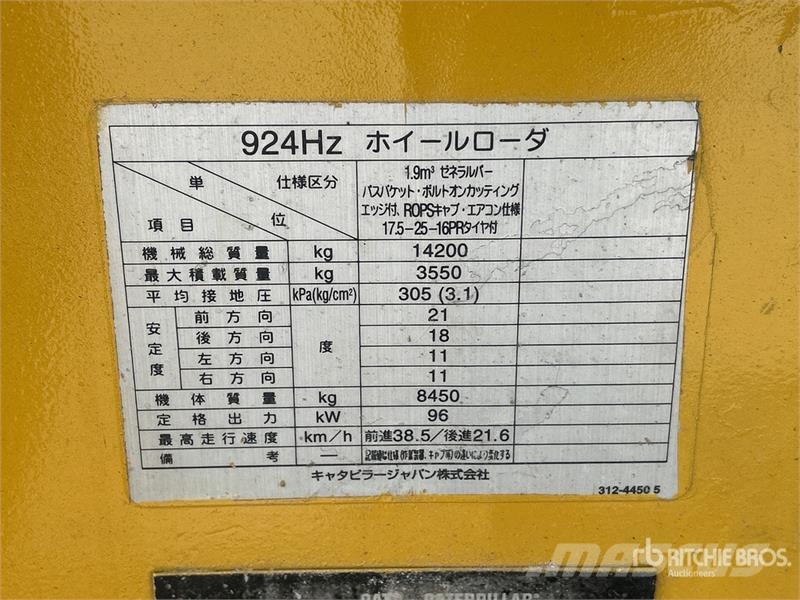 924Hz ホイールローダ
単 仕様区分
項目 位
1.9m³ ゼネラルパー
パスバケット・ボルトオンカッティング
エッジ付、ROPSキャブ・エアコン仕様
17.5-25-16PRタイヤ付
機械総質量 kg 14200
最大積載質量 kg 3550
平均接地圧 kPa(kg/cm²) 305 (3.1)
安定度 度
前方向 21
後方向 18
左方向 11
右方向 11
機体質量 kg 8450
定格出力 kW 96
最高走行速度 km/h 前進38.5/後進21.6
備考 —
キャタピラージャパン株式会社
312-4450 5
MASCUS
rb RITCHIE BROS.
Auctioneers